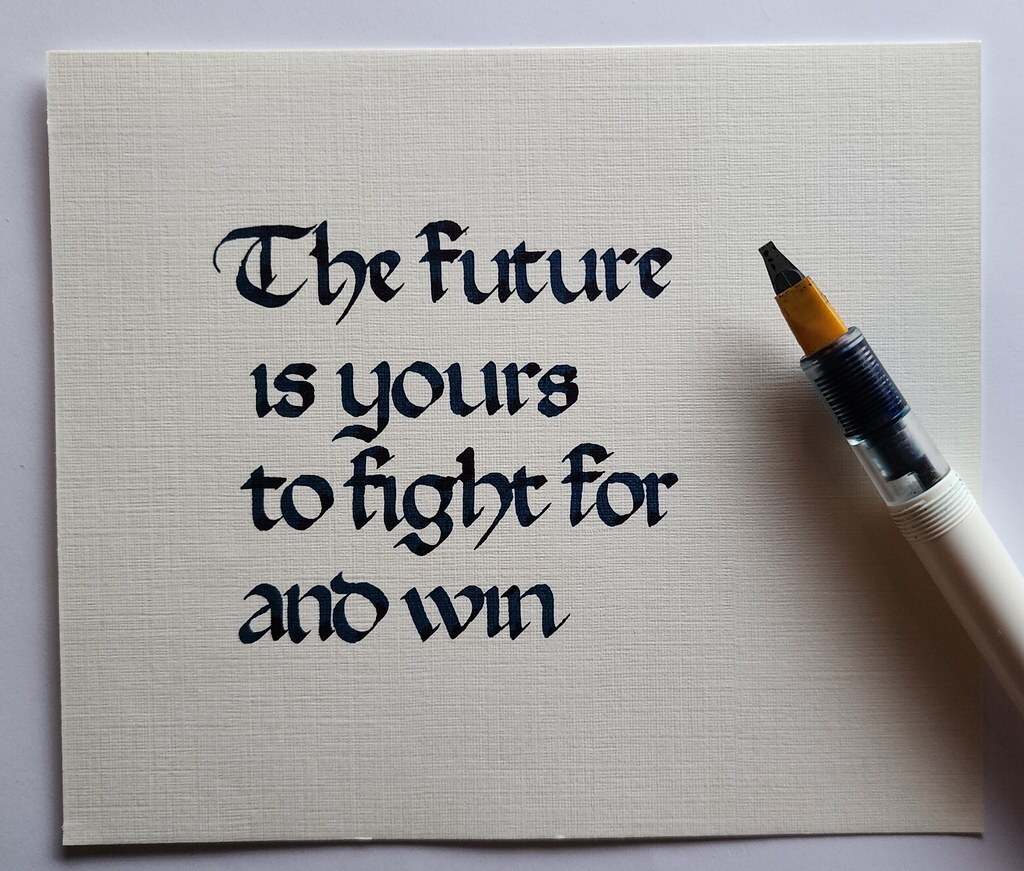 The future
is yours
to fight for
and win